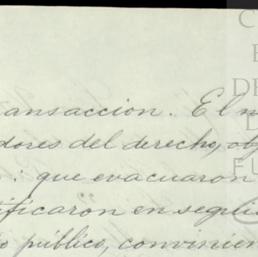 ansacción. El n
dores del derecho, ob
: que evacuaron
ificaron en segui
o público, convinien